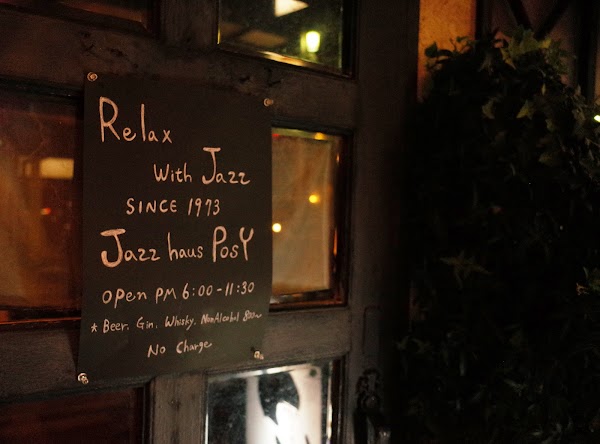 Relax
With Jazz
SINCE 1973
Jazz haus PosY
open PM 6:00-11:30
* Beer, Gin, Whisky, NonAlcohol 800~
No Charge